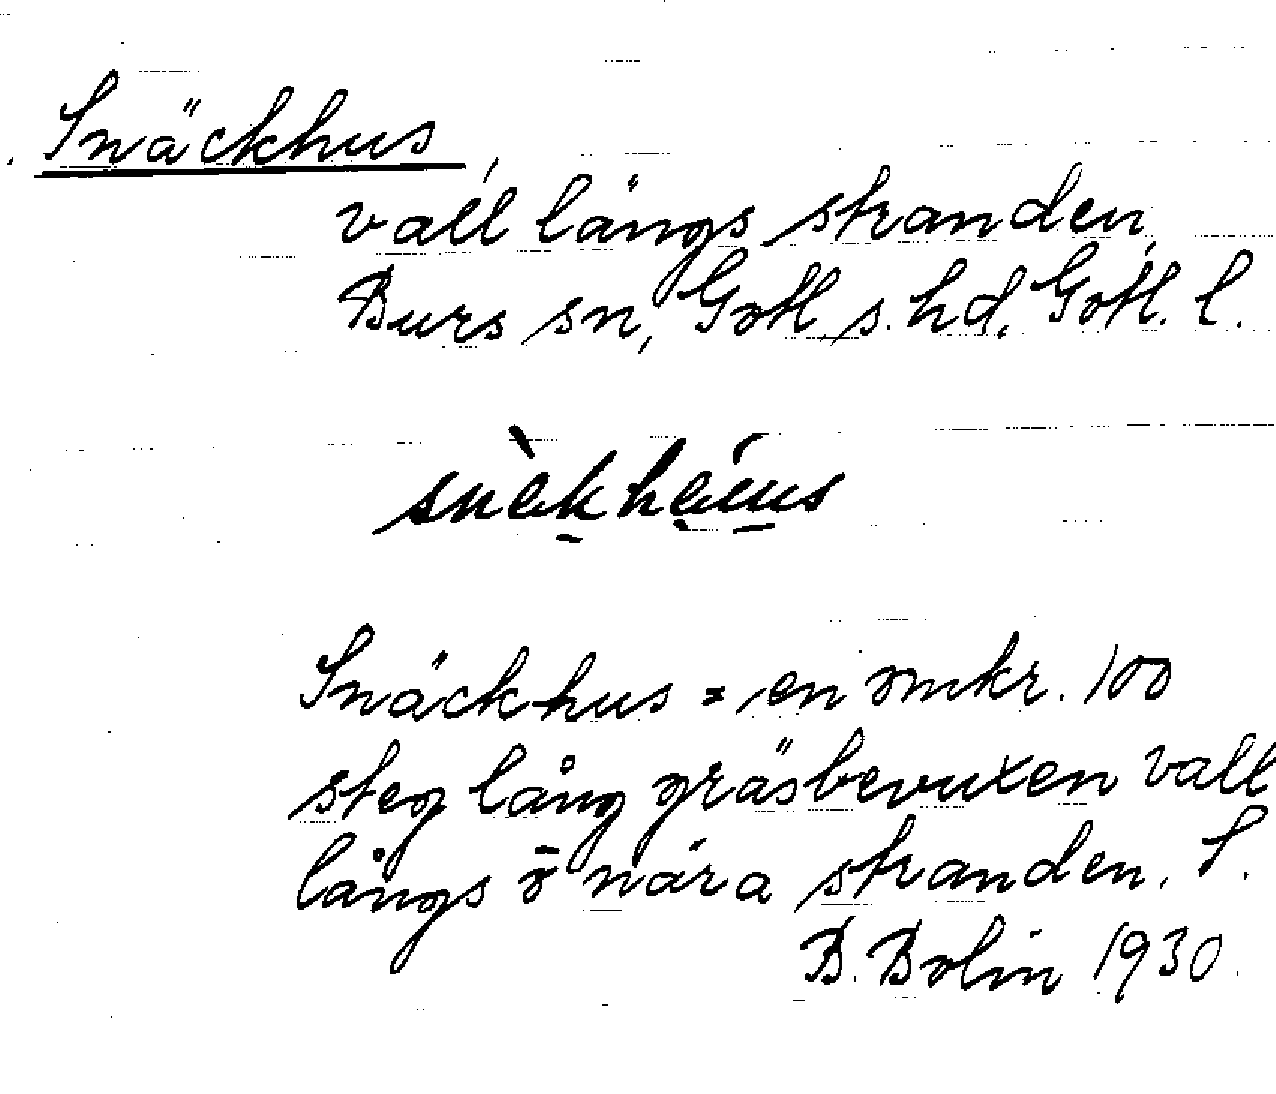 Snäckhus,
vall längs stranden,
Burs sn, Gotl. s. hd, Gotl. l.
snèkhéus
Snäckhus = en omkr. 100
steg lång gräsbevuxen vall
långs o nära stranden. S.
B. Bolin 1930.